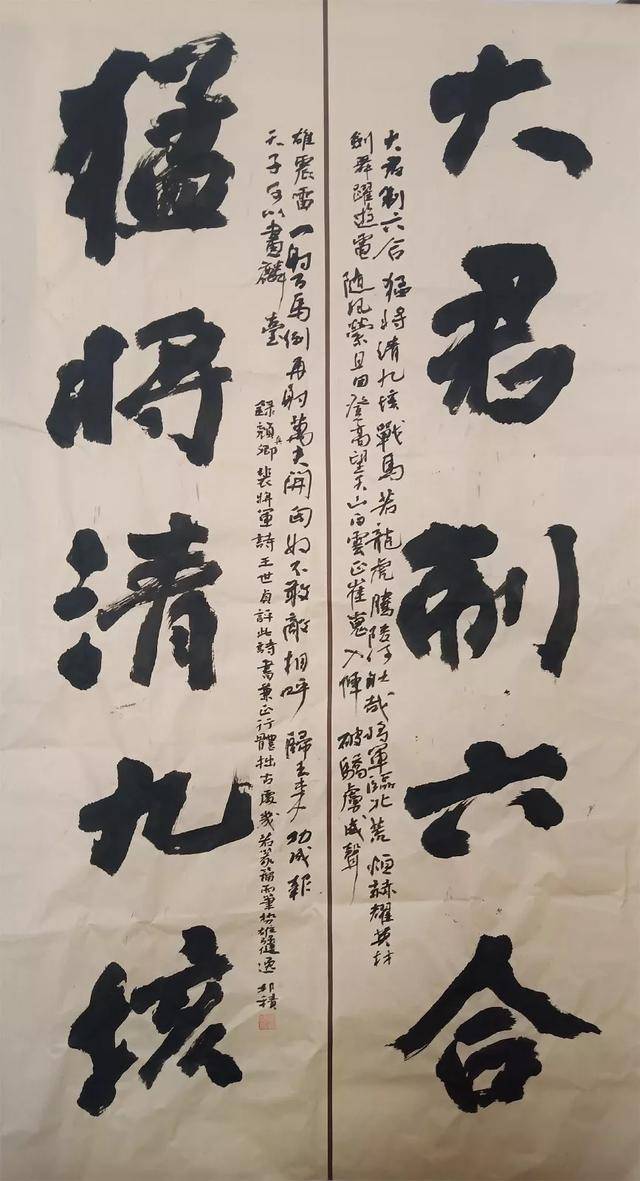 大君制六合
大君制六合猛将清九垓戰馬若龍虎騰陵何壯哉将軍臨北荒恒赫耀英材
劍舞躍遊電随風縈且回登高望天山白雲正崔嵬入陣破驕虜威聲
猛将清九垓
雄震雷一射百馬倒再射萬夫開匈奴不敢敵相呼歸去来功成報
天子可以畫麟臺
錄顏真卿裴将軍詩王世貞評此詩書兼正行體拙古處幾若篆籀而筆